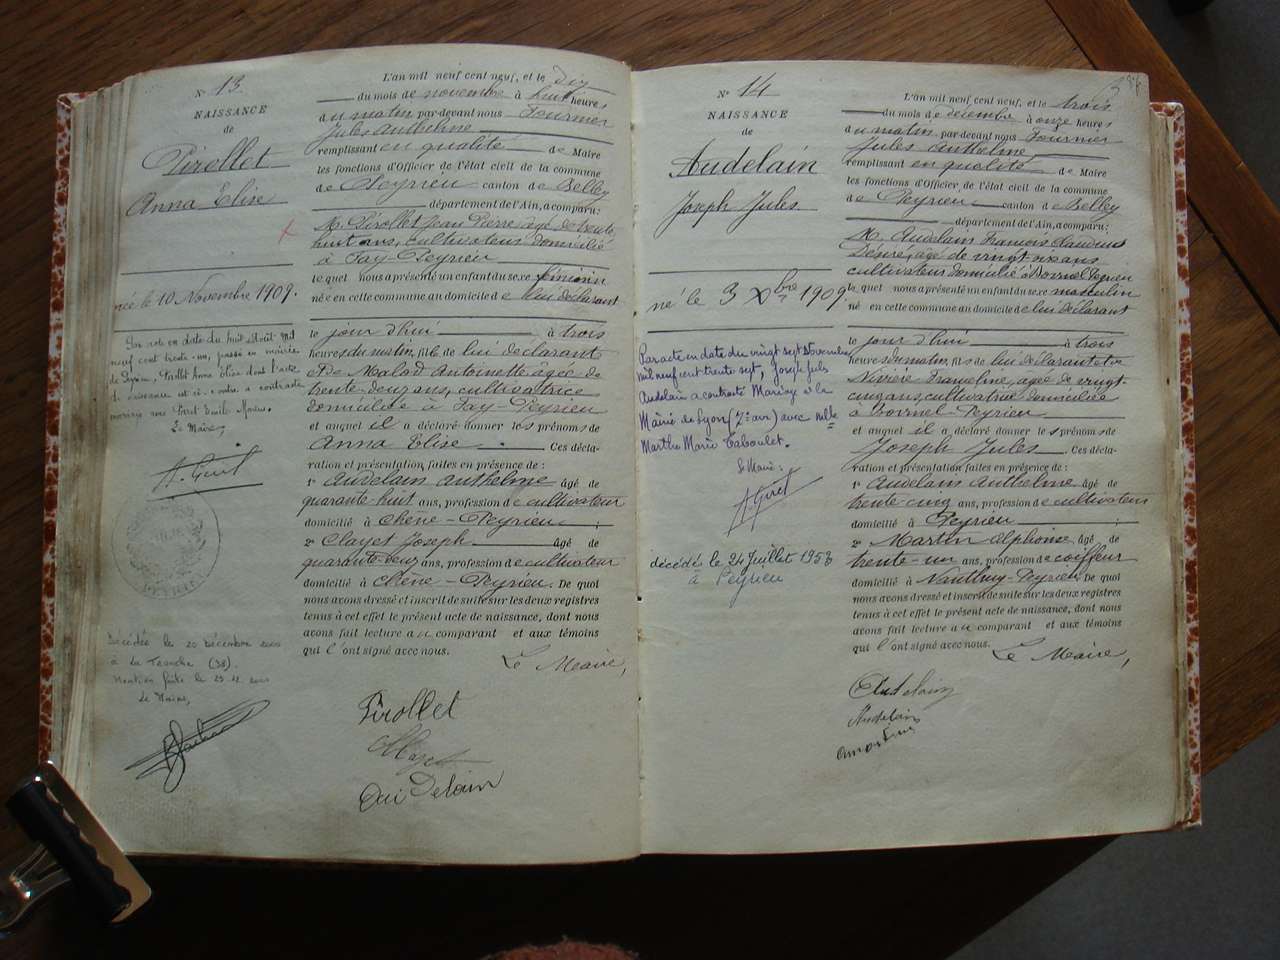 N° 13
NAISSANCE
de
Pirollet
Anna Elise
née le 10 Novembre 1909.
Par acte en date du huit Août mil
neuf cent trente-un, passé en mairie
de Peyrieu, Pirollet Anna Elise dont l'acte
de naissance est ci-contre a contracté
mariage avec Perret Emile
Le Maire,
Décédée le 20 Décembre
à La Tronche (38).
Mention faite le
Le Maire,
L'an mil neuf cent neuf, et le dix
du mois de novembre à huit heures
du matin par-devant nous Fournier
Jules Anthelme
remplissant en qualité de Maire
les fonctions d'Officier de l'état civil de la commune
de Peyrieu canton de Belley
département de l'Ain, a comparu:
M. Pirollet Jean Pierre âgé de trente
huit ans, cultivateur domicilié
à Fay-Peyrieu
lequel nous a présenté un enfant du sexe féminin
né en cette commune au domicile de lui déclarant
le jour d'hui à trois
heures du matin, fille de lui déclarant
et de Malod Antoinette agée de
trente-deux ans, cultivatrice
domiciliée à Fay-Peyrieu
et auquel il a déclaré donner les prénoms de
Anna Elise. Ces décla-
ration et présentation faites en présence de :
1° Audelain Anthelme âgé de
quarante-huit ans, profession de cultivateur
domicilié à Chêne-Peyrieu ;
2° Clayet Joseph âgé de
quarante-deux ans, profession de cultivateur
domicilié à Chêne-Peyrieu. De quoi
nous avons dressé et inscrit de suite sur les deux registres
tenus à cet effet le présent acte de naissance, dont nous
avons fait lecture au comparant et aux témoins
qui l'ont signé avec nous.
Le Maire,
Pirollet
Clayet
Audelain
N° 14
NAISSANCE
de
Audelain
Joseph Jules
né le 3 Xbre 1909
Par acte en date du vingt sept Novembre
mil neuf cent trente sept, Joseph Jules
Audelain a contracté Mariage à la
Mairie de Lyon (7e arr) avec Mlle
Marthe Marie Taboulet.
Le Maire:
décédé le 24 Juillet 1958
à Peyrieu
L'an mil neuf cent neuf, et le trois
du mois de décembre à onze heures
du matin par-devant nous Fournier
Jules Anthelme
remplissant en qualité de Maire
les fonctions d'Officier de l'état civil de la commune
de Peyrieu canton de Belley
département de l'Ain, a comparu:
M. Audelain François Claudius
Désiré, agé de vingt-six ans
cultivateur domicilié à Bovinel Peyrieu
lequel nous a présenté un enfant du sexe masculin
né en cette commune au domicile de lui déclarant
le jour d'hui à trois
heures du matin, fils de lui déclarant et de
Nivière Franceline, agée de vingt-
cinq ans, cultivatrice domiciliée
à Bovinel-Peyrieu
et auquel il a déclaré donner les prénoms de
Joseph Jules. Ces décla-
ration et présentation faites en présence de :
1° Audelain Anthelme âgé de
trente-cinq ans, profession de cultivateur
domicilié à Peyrieu ;
2° Martin Alphonse âgé de
trente-un ans, profession de coiffeur
domicilié à Nanthuy-Peyrieu De quoi
nous avons dressé et inscrit de suite sur les deux registres
tenus à cet effet le présent acte de naissance, dont nous
avons fait lecture au comparant et aux témoins
qui l'ont signé avec nous.
Le Maire,
Audelain
Audelain